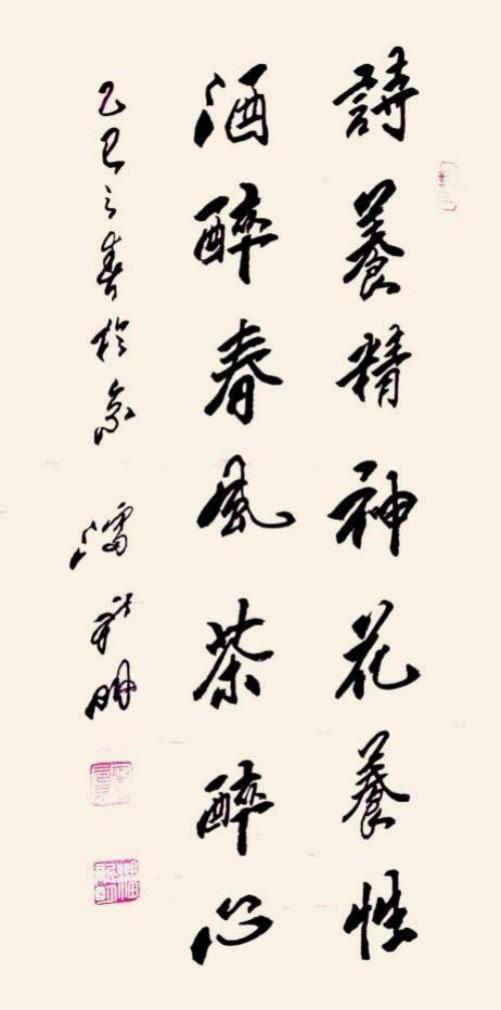 詩養精神花養性
酒醉春風茶醉心
乙巳之春於京